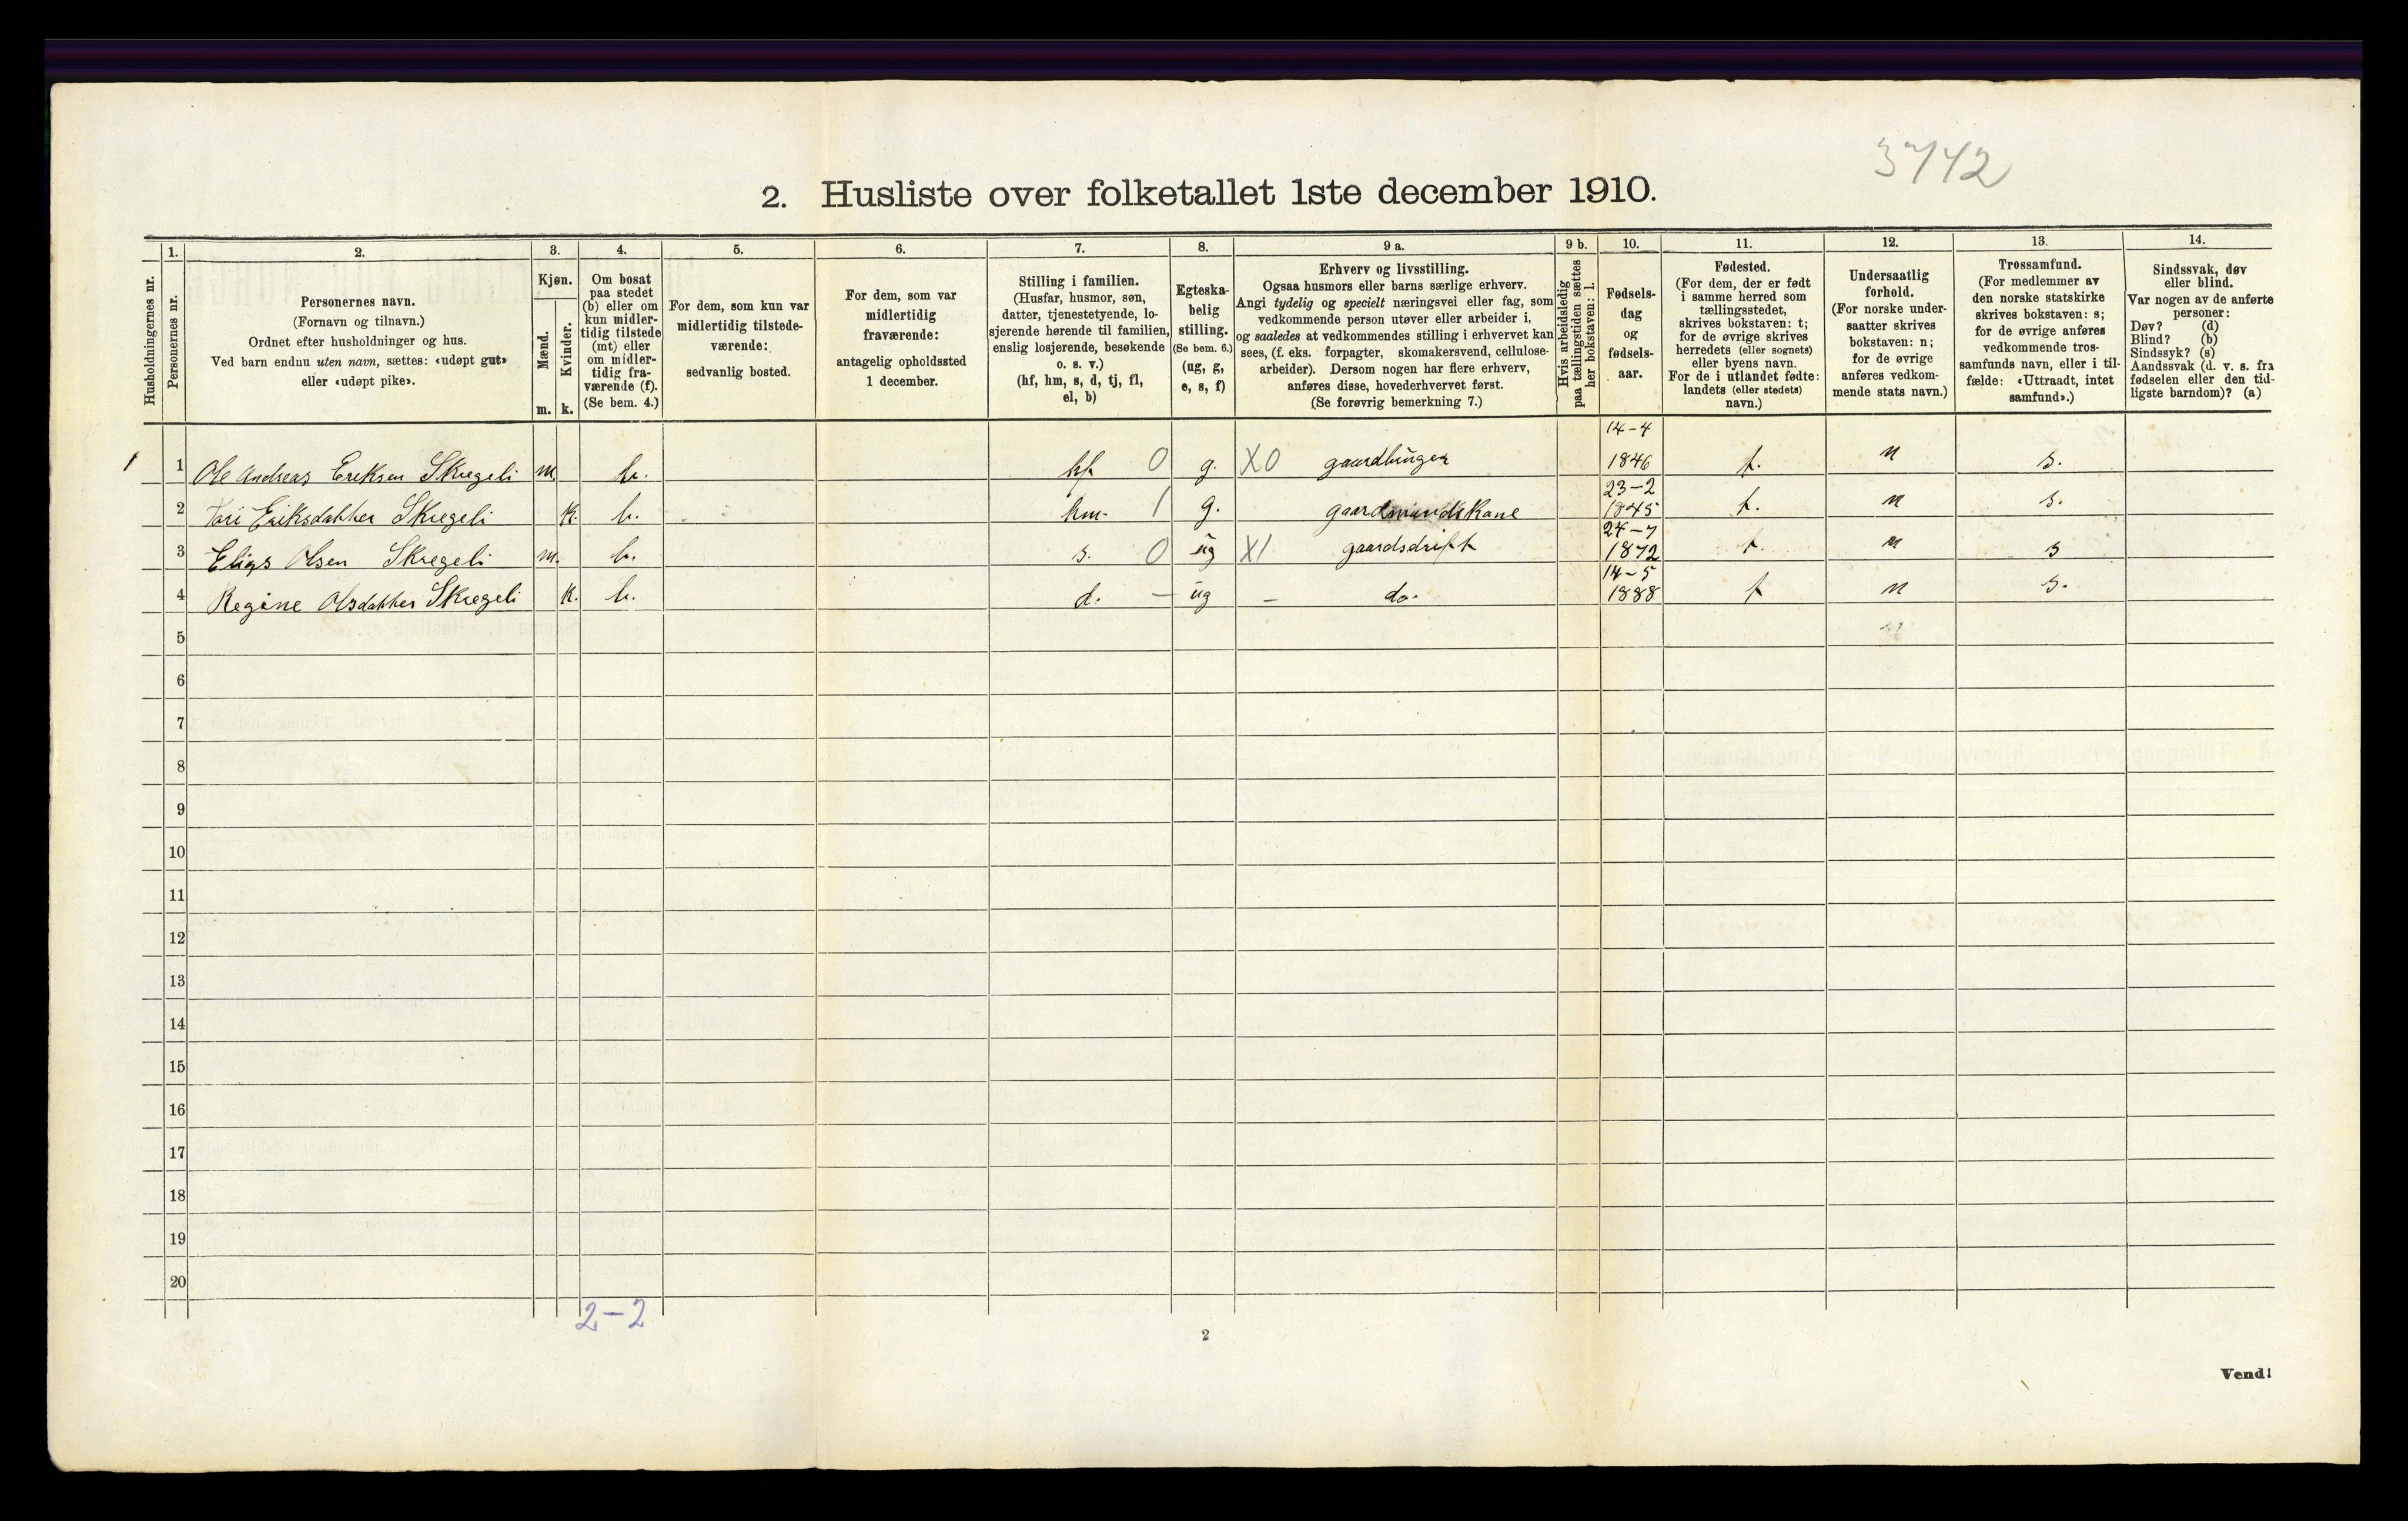 3742
2. Husliste over folketallet 1ste december 1910.
Husholdningernes nr.
1.
Personernes nr.
2.
Personernes navn.
(Fornavn og tilnavn.)
Ordnet efter husholdninger og hus.
Ved barn endnu uten navn, sættes: «udøpt gut»
eller «udøpt pike».
3.
Kjøn.
Mænd.
m.
Kvinder.
k.
4.
Om bosat
paa stedet
(b) eller om
kun midler-
tidig tilstede
(mt) eller
om midler-
tidig fra-
værende (f).
(Se bem. 4.)
5.
For dem, som kun var
midlertidig tilstede-
værende:
sedvanlig bosted.
6.
For dem, som var
midlertidig
fraværende:
antagelig opholdssted
1 december.
7.
Stilling i familien.
(Husfar, husmor, søn,
datter, tjenestetyende, lo-
sjerende hørende til familien,
enslig losjerende, besøkende
o. s. v.)
(hf, hm, s, d, tj, fl,
el, b)
8.
Egteska-
belig
stilling.
(Se bem. 6.)
(ug, g,
e, s, f)
9 a.
Erhverv og livsstilling.
Ogsaa husmors eller barns særlige erhverv.
Angi tydelig og specielt næringsvei eller fag, som
vedkommende person utøver eller arbeider i,
og saaledes at vedkommendes stilling i erhvervet kan
sees, (f. eks. forpagter, skomakersvend, cellulose-
arbeider). Dersom nogen har flere erhverv,
anføres disse, hovederhvervet først.
(Se forøvrig bemerkning 7.)
9 b.
Hvis arbeidsledig
paa tællingstiden sættes
her bokstaven: l.
10.
Fødsels-
dag
og
fødsels-
aar.
11.
Fødested.
(For dem, der er født
i samme herred som
tællingsstedet,
skrives bokstaven: t;
for de øvrige skrives
herredets (eller sognets)
eller byens navn.
For de i utlandet fødte:
landets (eller stedets)
navn.)
12.
Undersaatlig
forhold.
(For norske under-
saatter skrives
bokstaven: n;
for de øvrige
anføres vedkom-
mende stats navn.)
13.
Trossamfund.
(For medlemmer av
den norske statskirke
skrives bokstaven: s;
for de øvrige anføres
vedkommende tros-
samfunds navn, eller i til-
fælde: «Uttraadt, intet
samfund».)
14.
Sindssvak, døv
eller blind.
Var nogen av de anførte
personer:
Døv? (d)
Blind? (b)
Sindssyk? (s)
Aandssvak (d. v. s. fra
fødselen eller den tid-
ligste barndom)? (a)
1 1 Ole Andreas Eriksen Skregeli m. b. hf 0 g. X0 gaardbruger 14-4 1846 t. n s.
2 Eriksdatter Skregeli k. b. hm- 1 g. gaardmandskone 23-2 1845 t. n s.
3 Olsen Skregeli m. b. s. 0 ug X1 gaardsdrift 24-7 1872 t. n s
4 Regine Olsdatter Skregeli k. b. d. - ug - do. 14-5 1888 t n s.
5
6
7
8
9
10
11
12
13
14
15
16
17
18
19
20
2-2
2
Vend!